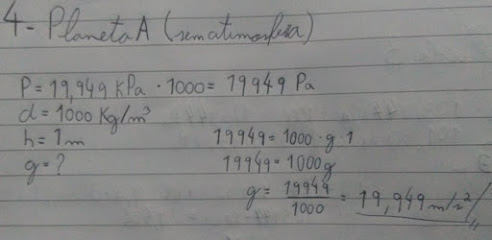 4- Planeta A (sem atmosfera)
P = 19,949 KPa · 1000 = 19949 Pa
d = 1000 Kg/m³
h = 1m 19949 = 1000 · g · 1
g = ? 19949 = 1000g
g = 19949/1000 = 19,949 m/s²//